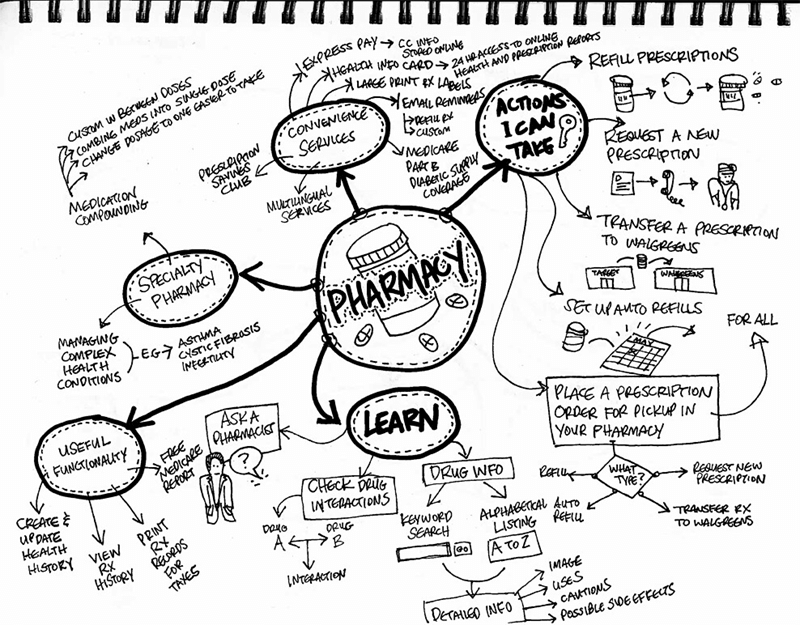 PHARMACY
CONVENIENCE
SERVICES
EXPRESS PAY → CC INFO
STORED ONLINE
HEALTH INFO CARD → 24 HR ACCESS TO ONLINE
HEALTH AND PRESCRIPTION REPORTS
LARGE PRINT RX
LABELS
EMAIL REMINDERS
REFILL RX
CUSTOM
MEDICARE
PART B
DIABETIC SUPPLY
COVERAGE
MULTILINGUAL
SERVICES
PRESCRIPTION
SAVINGS
CLUB
ACTIONS
I CAN
TAKE
REFILL PRESCRIPTIONS
REQUEST A NEW
PRESCRIPTION
TRANSFER A PRESCRIPTION
TO WALGREENS
TARGET
WALGREENS
SET UP AUTO REFILLS
MAY
FOR ALL
PLACE A PRESCRIPTION
ORDER FOR PICKUP IN
YOUR PHARMACY
WHAT
TYPE?
REFILL
AUTO
REFILL
REQUEST NEW
PRESCRIPTION
TRANSFER RX
TO WALGREENS
SPECIALTY
PHARMACY
MEDICATION
COMPOUNDING
CUSTOM IN BETWEEN DOSES
COMBINING MEDS INTO SINGLE DOSE
CHANGE DOSAGE TO ONE EASIER TO TAKE
MANAGING
COMPLEX
HEALTH
CONDITIONS
E.G →
ASTHMA
CYSTIC FIBROSIS
INFERTILITY
USEFUL
FUNCTIONALITY
FREE
MEDICARE
REPORT
CREATE &
UPDATE
HEALTH
HISTORY
VIEW
RX
HISTORY
PRINT
RX
RECORDS
FOR
TAXES
LEARN
ASK A
PHARMACIST
?
CHECK DRUG
INTERACTIONS
DRUG
A
DRUG
B
INTERACTION
DRUG INFO
KEYWORD
SEARCH
GO
ALPHABETICAL
LISTING
A TO Z
DETAILED INFO
IMAGE
USES
CAUTIONS
POSSIBLE SIDE EFFECTS